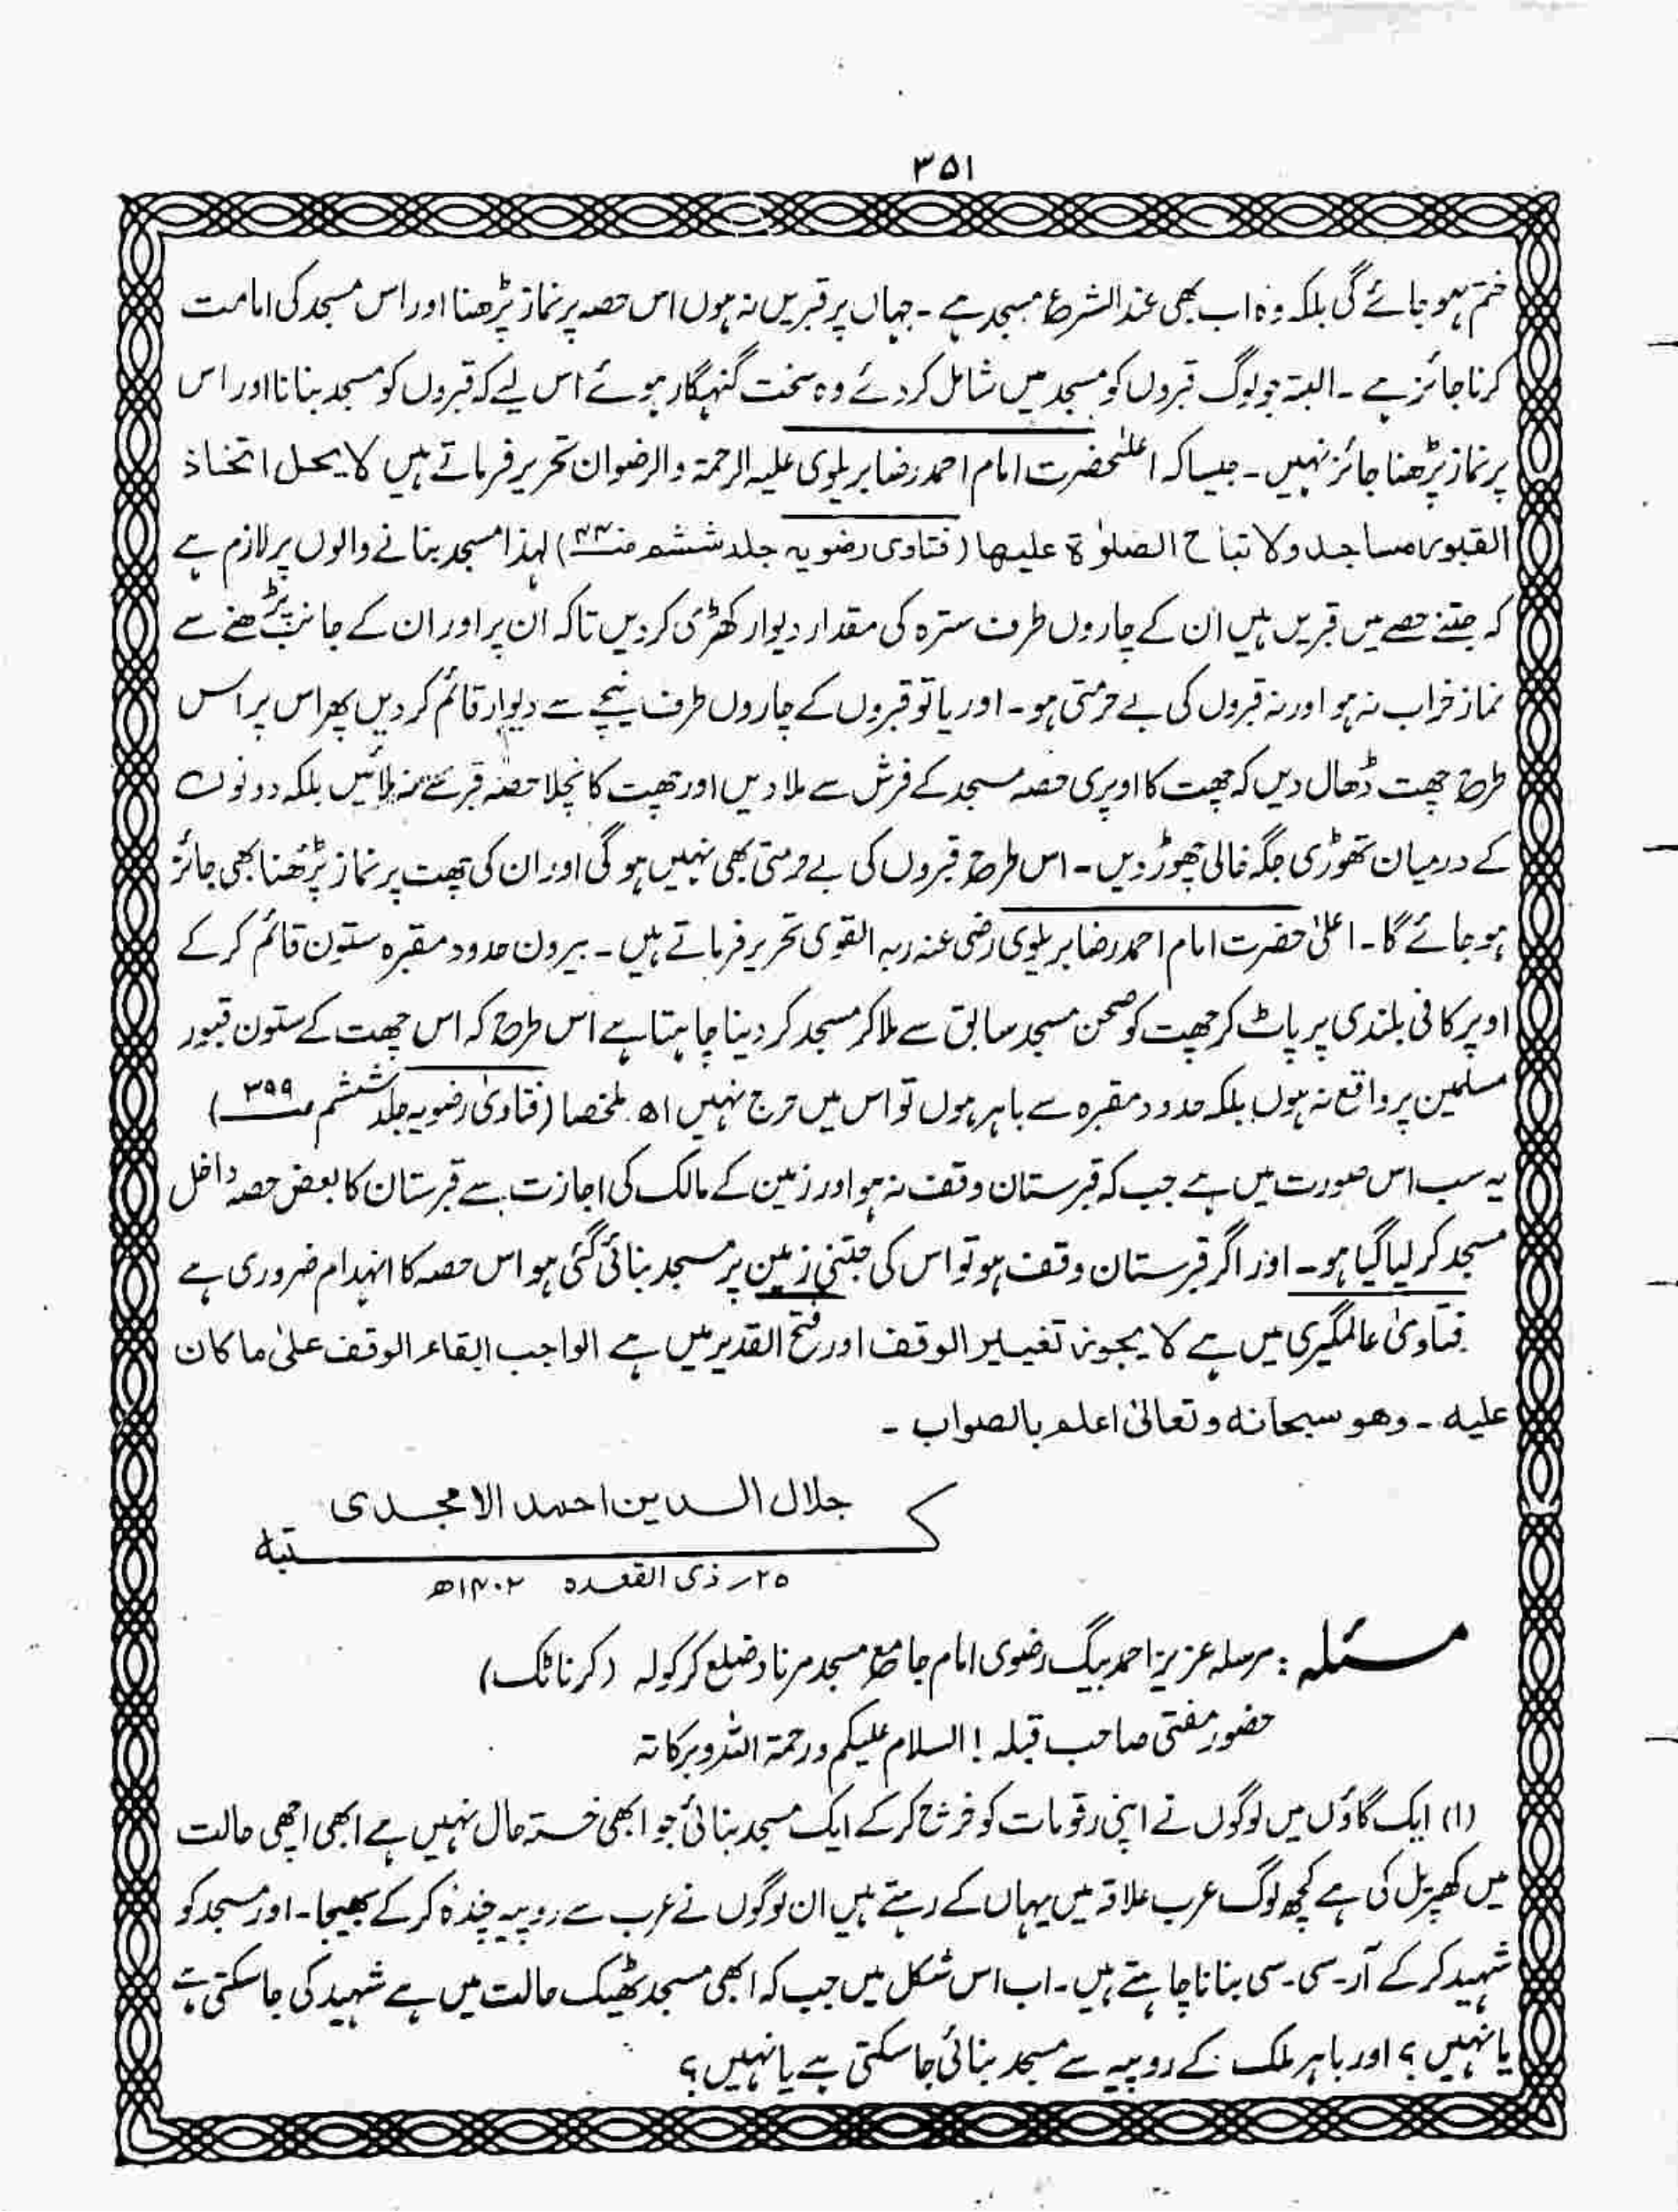 ۳۵۱
ختم ہو جائے گی بلکہ وہ اب بھی عند الشرع مسجد ہے ۔ جہاں پر قبریں نہ ہوں اس حصہ پر نماز پڑھنا اور اس مسجد کی امامت
کرنا جائز ہے ۔ البتہ جو لوگ قبروں کو مسجد میں شامل کر دئے وہ سخت گنہگار ہوئے اس لیے کہ قبروں کو مسجد بنانا اور اس
پر نماز پڑھنا جائز نہیں ۔ جیسا کہ اعلیٰحضرت امام احمد رضا بریلوی علیہ الرحمۃ والرضوان تحریر فرماتے ہیں لا یحل اتخاذ
القبور مساجد ولا تباح الصلوٰۃ علیھا (فتاوی رضویہ جلد ششم) لہذا مسجد بنانے والوں پر لازم ہے
کہ جتنے حصے میں قبریں ہیں ان کے چاروں طرف سترہ کی مقدار دیوار کھڑی کر دیں تاکہ ان پر اور ان کے جانب پڑھنے سے
نماز خراب نہ ہو اور نہ قبروں کی بے حرمتی ہو ۔ اور یا تو قبروں کے چاروں طرف نیچے سے دیوار قائم کر دیں پھر اس پر اس
طرح چھت ڈھال دیں کہ چھت کا اوپری حصہ مسجد کے فرش سے ملا دیں اور چھت کا نچلا حصہ قبر سے نہ ملائیں بلکہ دونوں
کے درمیان تھوڑی جگہ خالی چھوڑ دیں ۔ اس طرح قبروں کی بے حرمتی بھی نہیں ہو گی اور ان کی چھت پر نماز پڑھنا بھی جائز
ہو جائے گا ۔ اعلیٰ حضرت امام احمد رضا بریلوی رضی عنہ ربہ القوی تحریر فرماتے ہیں ۔ بیرون حدود مقبرہ ستون قائم کر کے
اوپر کافی بلندی پر پاٹ کر چھت کو صحن مسجد سابق سے ملا کر مسجد کر دینا چاہتا ہے اس طرح کہ اس چھت کے ستون قبور
مسلمین پر واقع نہ ہوں بلکہ حدود مقبرہ سے باہر ہوں تو اس میں حرج نہیں اھ ملخصا (فتاویٰ رضویہ جلد ششم ص ۳۹۹)
یہ سب اس صورت میں ہے جب کہ قبرستان وقف نہ ہو اور زمین کے مالک کی اجازت سے قبرستان کا بعض حصہ داخل
مسجد کر لیا گیا ہو ۔ اور اگر قبرستان وقف ہو تو اس کی جتنی زمین پر مسجد بنائی گئی ہو اس حصہ کا انہدام ضروری ہے
فتاویٰ عالمگیری میں ہے لا یجوز تغییر الوقف اور فتح القدیر میں ہے الواجب ابقاء الوقف علیٰ ما کان
علیہ ۔ وھو سبحانہ وتعالیٰ اعلم بالصواب ۔
جلال الدین احمد الامجدی
کتبہ
۲۵؍ ذی القعدہ ۱۴۰۲ھ
مسئلہ : مرسلہ عزیز احمد بیگ رضوی امام جامع مسجد مرناد ضلع کرکولہ (کرناٹک)
حضور مفتی صاحب قبلہ ! السلام علیکم ورحمۃ اللہ وبرکاتہ
(۱) ایک گاؤں میں لوگوں نے اپنی رقومات کو خرچ کر کے ایک مسجد بنائی جو ابھی خستہ حال نہیں ہے ابھی اچھی حالت
میں کھپریل کی ہے کچھ لوگ عرب علاقہ میں یہاں کے رہتے ہیں ان لوگوں نے عرب سے روپیہ چندہ کر کے بھیجا ۔ اور مسجد کو
شہید کر کے آر ۔ سی ۔ سی بنانا چاہتے ہیں ۔ اب اس شکل میں جب کہ ابھی مسجد ٹھیک حالت میں ہے شہید کی جا سکتی ہے
یا نہیں ؟ اور باہر ملک کے روپیہ سے مسجد بنائی جا سکتی ہے یا نہیں ؟